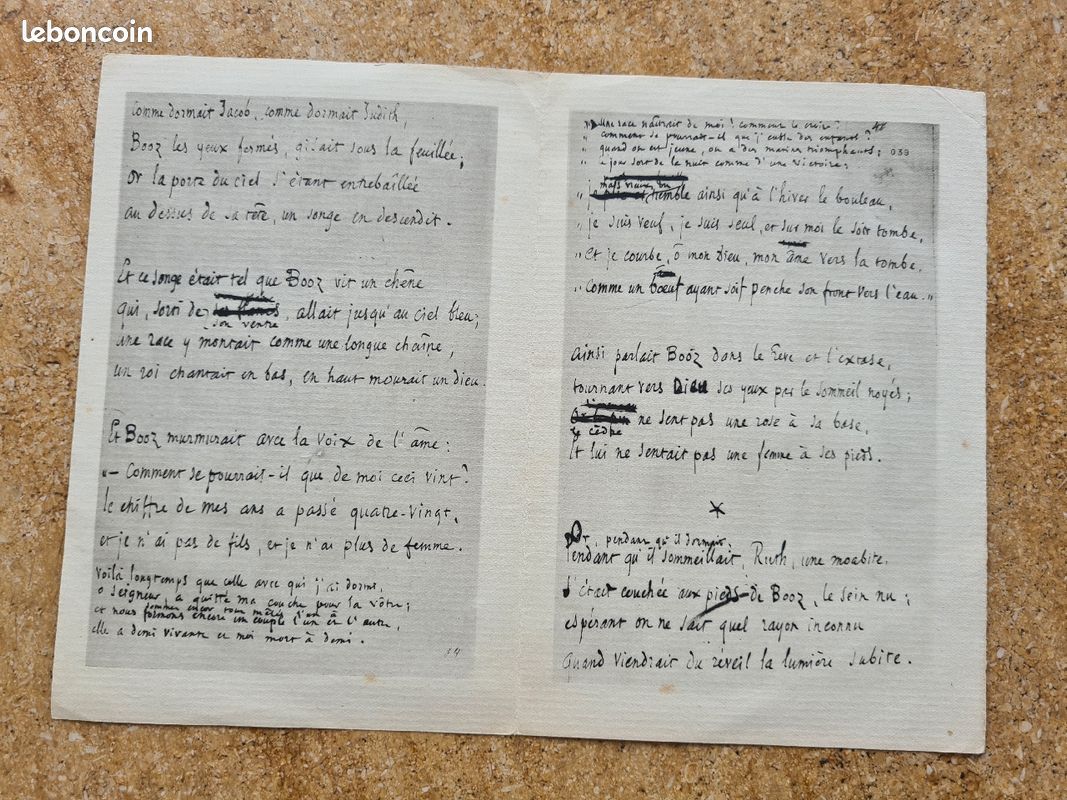 leboncoin
comme dormait Jacob, comme dormait Judith,
Booz les yeux fermés, gisait sous la feuillée;
or la porte du ciel s'étant entrebaillée
au dessus de sa tête, un songe en descendit.
Et ce songe était tel que Booz vit un chêne
qui, sorti de son ventre, allait jusqu'au ciel bleu;
une race y montait comme une longue chaîne,
un roi chantait en bas, en haut mourait un dieu.
Et Booz murmurait avec la voix de l'âme:
"— Comment se pourrait-il que de moi ceci vînt?
le chiffre de mes ans a passé quatre-vingt,
et je n'ai pas de fils, et je n'ai plus de femme.
voilà longtemps que celle avec qui j'ai dormi,
o Seigneur, a quitté ma couche pour la vôtre;
sommes encor tout mêlés
et nous formons encore un couple l'un et l'autre,
elle à demi vivante et moi mort à demi.
" une race naîtrait de moi! comment le croire?
" comment se pourrait-il que j'eusse des enfants?
" quand on est jeune, on a des matins triomphants;
039
" le jour sort de la nuit comme d'une victoire;
mais vieux, on
" tremble ainsi qu'à l'hiver le bouleau,
" je suis veuf, je suis seul, et sur moi le soir tombe,
" Et je courbe, ô mon Dieu, mon âme vers la tombe,
" Comme un bœuf ayant soif penche son front vers l'eau."
ainsi parlait Booz dans le rêve et l'extase,
tournant vers Dieu ses yeux par le sommeil noyés;
le cèdre ne sent pas une rose à sa base,
Et lui ne sentait pas une femme à ses pieds.
Or, pendant qu'il dormait,
Pendant qu'il sommeillait, Ruth, une moabite,
S'était couchée aux pieds de Booz, le sein nu;
espérant on ne sait quel rayon inconnu
quand viendrait du réveil la lumière subite.